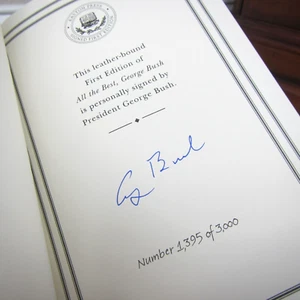 This leather-bound
First Edition of
All the Best, George Bush
is personally signed by
President George Bush.
G Bush
Number 1,395 of 3,000